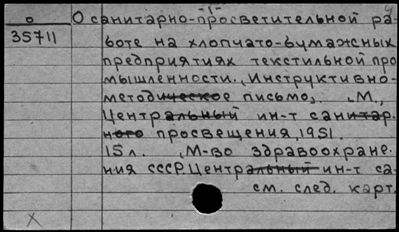 О О санитарно-просветительной ра-
35711 боте на хлопчато-бумажных
предприятиях текстильной про
мышленности. Инструктивно-
методическое письмо. М.,
Центральный ин-т санитар.
ного просвещения, 1951.
15 л. (М-во здравоохране.
ния СССР. Центральный ин-т са-
см. след. карт.
X